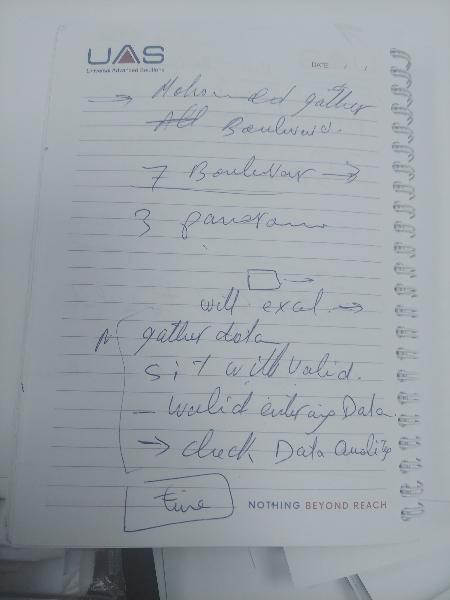 UAS
Universal Advanced Solutions
DATE: / /
→ Mohammed gather
All Boulevard.
7 Boulevar →
3 panoram
→
will excel →
gather data
sit with Valid.
- walid entering Data.
→ check Data Quality
time
NOTHING BEYOND REACH